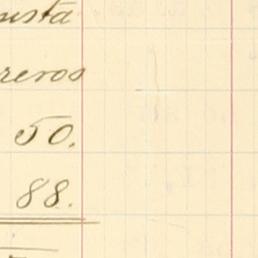 usta
reros
50.
88.